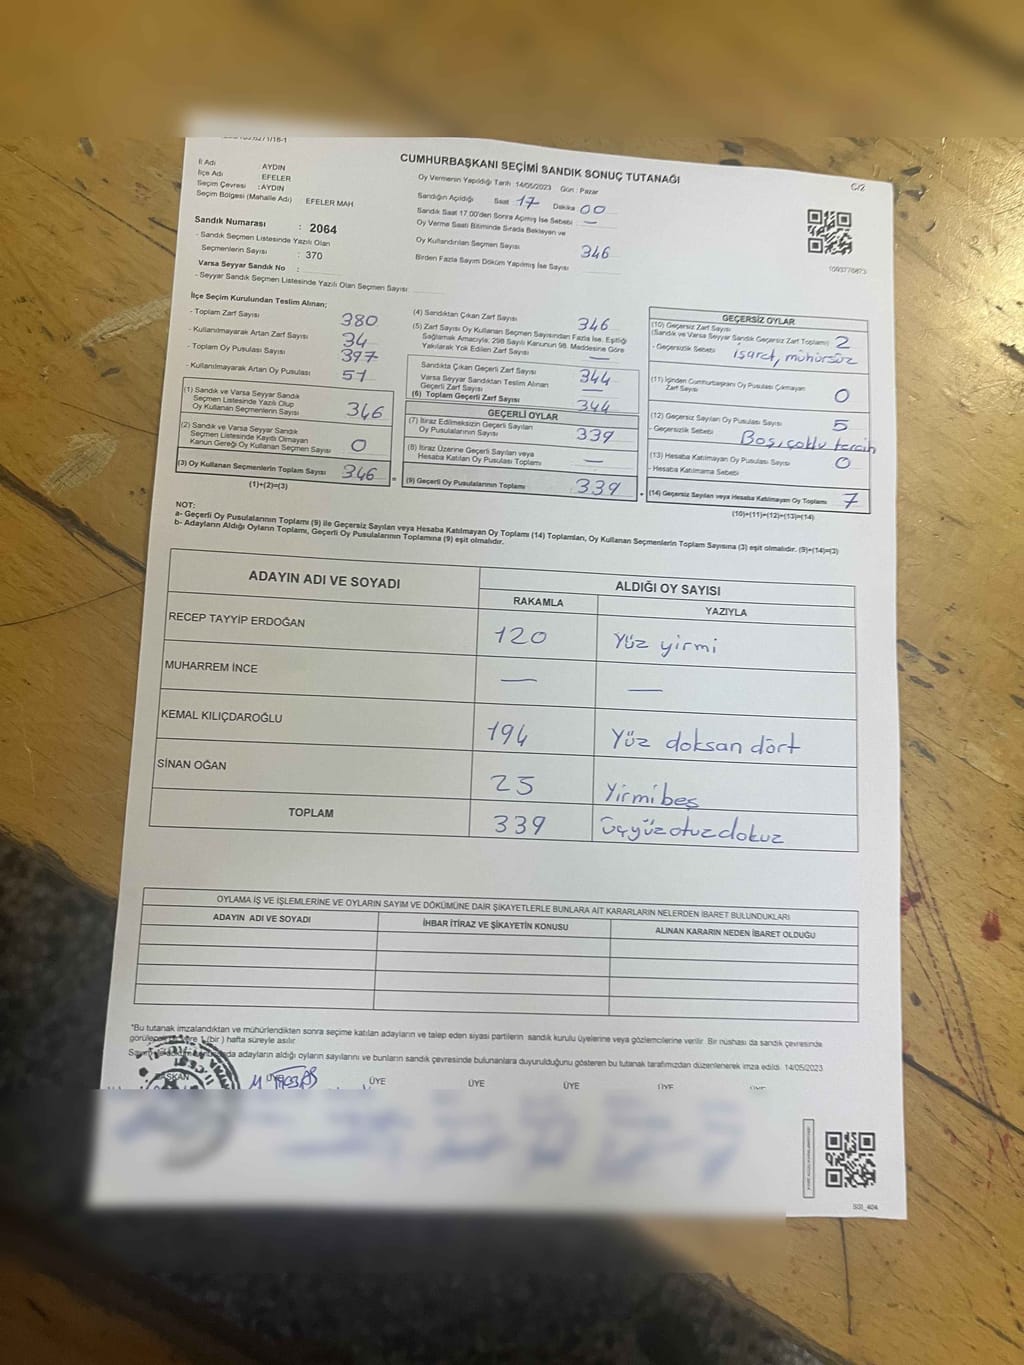 CUMHURBAŞKANI SEÇİMİ SANDIK SONUÇ TUTANAĞI
C/2
İl Adı : AYDIN
İlçe Adı : EFELER
Seçim Çevresi : AYDIN
Seçim Bölgesi (Mahalle Adı) EFELER MAH
Sandık Numarası : 2064
- Sandık Seçmen Listesinde Yazılı Olan
Seçmenlerin Sayısı : 370
Varsa Seyyar Sandık No :
- Seyyar Sandık Seçmen Listesinde Yazılı Olan Seçmen Sayısı
Oy Vermenin Yapıldığı Tarih :14/05/2023 Gün : Pazar
Sandığın Açıldığı Saat 17 Dakika 00
Sandık Saat 17.00'den Sonra Açılmış İse Sebebi —
Oy Verme Saati Bitiminde Sırada Bekleyen ve
Oy Kullandırılan Seçmen Sayısı 346
Birden Fazla Sayım Döküm Yapılmış İse Sayısı
İlçe Seçim Kurulundan Teslim Alınan;
- Toplam Zarf Sayısı 380
- Kullanılmayarak Artan Zarf Sayısı 34
- Toplam Oy Pusulası Sayısı 397
- Kullanılmayarak Artan Oy Pusulası 51
(1) Sandık ve Varsa Seyyar Sandık
Seçmen Listesinde Yazılı Olup
Oy Kullanan Seçmenlerin Sayısı 346
(2) Sandık ve Varsa Seyyar Sandık
Seçmen Listesinde Kayıtlı Olmayan
Kanun Gereği Oy Kullanan Seçmen Sayısı 0
(3) Oy Kullanan Seçmenlerin Toplam Sayısı 346
(1)+(2)=(3)
(4) Sandıktan Çıkan Zarf Sayısı 346
(5) Zarf Sayısı Oy Kullanan Seçmen Sayısından Fazla İse, Eşitliği
Sağlamak Amacıyla; 298 Sayılı Kanunun 98. Maddesine Göre
Yakılarak Yok Edilen Zarf Sayısı —
Sandıkta Çıkan Geçerli Zarf Sayısı 344
Varsa Seyyar Sandıktan Teslim Alınan
Geçerli Zarf Sayısı —
(6) Toplam Geçerli Zarf Sayısı 344
GEÇERLİ OYLAR
(7) İtiraz Edilmeksizin Geçerli Sayılan
Oy Pusulalarının Sayısı 339
(8) İtiraz Üzerine Geçerli Sayılan veya
Hesaba Katılan Oy Pusulası Toplamı —
= (9) Geçerli Oy Pusulalarının Toplamı 339
GEÇERSİZ OYLAR
(10) Geçersiz Zarf Sayısı
(Sandık ve Varsa Seyyar Sandık Geçersiz Zarf Toplamı) 2
- Geçersizlik Sebebi işaret, mühürsüz
(11) İçinden Cumhurbaşkanı Oy Pusulası Çıkmayan
Zarf Sayısı 0
(12) Geçersiz Sayılan Oy Pusulası Sayısı 5
- Geçersizlik Sebebi Boş, çoklu tercih
(13) Hesaba Katılmayan Oy Pusulası Sayısı 0
- Hesaba Katılmama Sebebi
+ (14) Geçersiz Sayılan veya Hesaba Katılmayan Oy Toplamı 7
(10)+(11)+(12)+(13)=(14)
NOT:
a- Geçerli Oy Pusulalarının Toplamı (9) ile Geçersiz Sayılan veya Hesaba Katılmayan Oy Toplamı (14) Toplamları, Oy Kullanan Seçmenlerin Toplam Sayısına (3) eşit olmalıdır. (9)+(14)=(3)
b- Adayların Aldığı Oyların Toplamı, Geçerli Oy Pusulalarının Toplamına (9) eşit olmalıdır.
ADAYIN ADI VE SOYADI ALDIĞI OY SAYISI
RAKAMLA YAZIYLA
RECEP TAYYİP ERDOĞAN 120 Yüz yirmi
MUHARREM İNCE — —
KEMAL KILIÇDAROĞLU 194 Yüz doksan dört
SİNAN OĞAN 25 Yirmibeş
TOPLAM 339 üçyüzotuzdokuz
OYLAMA İŞ VE İŞLEMLERİNE VE OYLARIN SAYIM VE DÖKÜMÜNE DAİR ŞİKAYETLERLE BUNLARA AİT KARARLARIN NELERDEN İBARET BULUNDUKLARI
ADAYIN ADI VE SOYADI İHBAR İTİRAZ VE ŞİKAYETİN KONUSU ALINAN KARARIN NEDEN İBARET OLDUĞU
"Bu tutanak imzalandıktan ve mühürlendikten sonra seçime katılan adayların ve talep eden siyasi partilerin sandık kurulu üyelerine veya gözlemcilerine verilir. Bir nüshası da sandık çevresinde
(bir ) hafta süreyle asılır.
adayların aldığı oyların sayılarını ve bunların sandık çevresinde bulunanlara duyurulduğunu gösteren bu tutanak tarafımızdan düzenlenerek imza edildi. 14/05/2023
ÜYE ÜYE ÜYE ÜYE